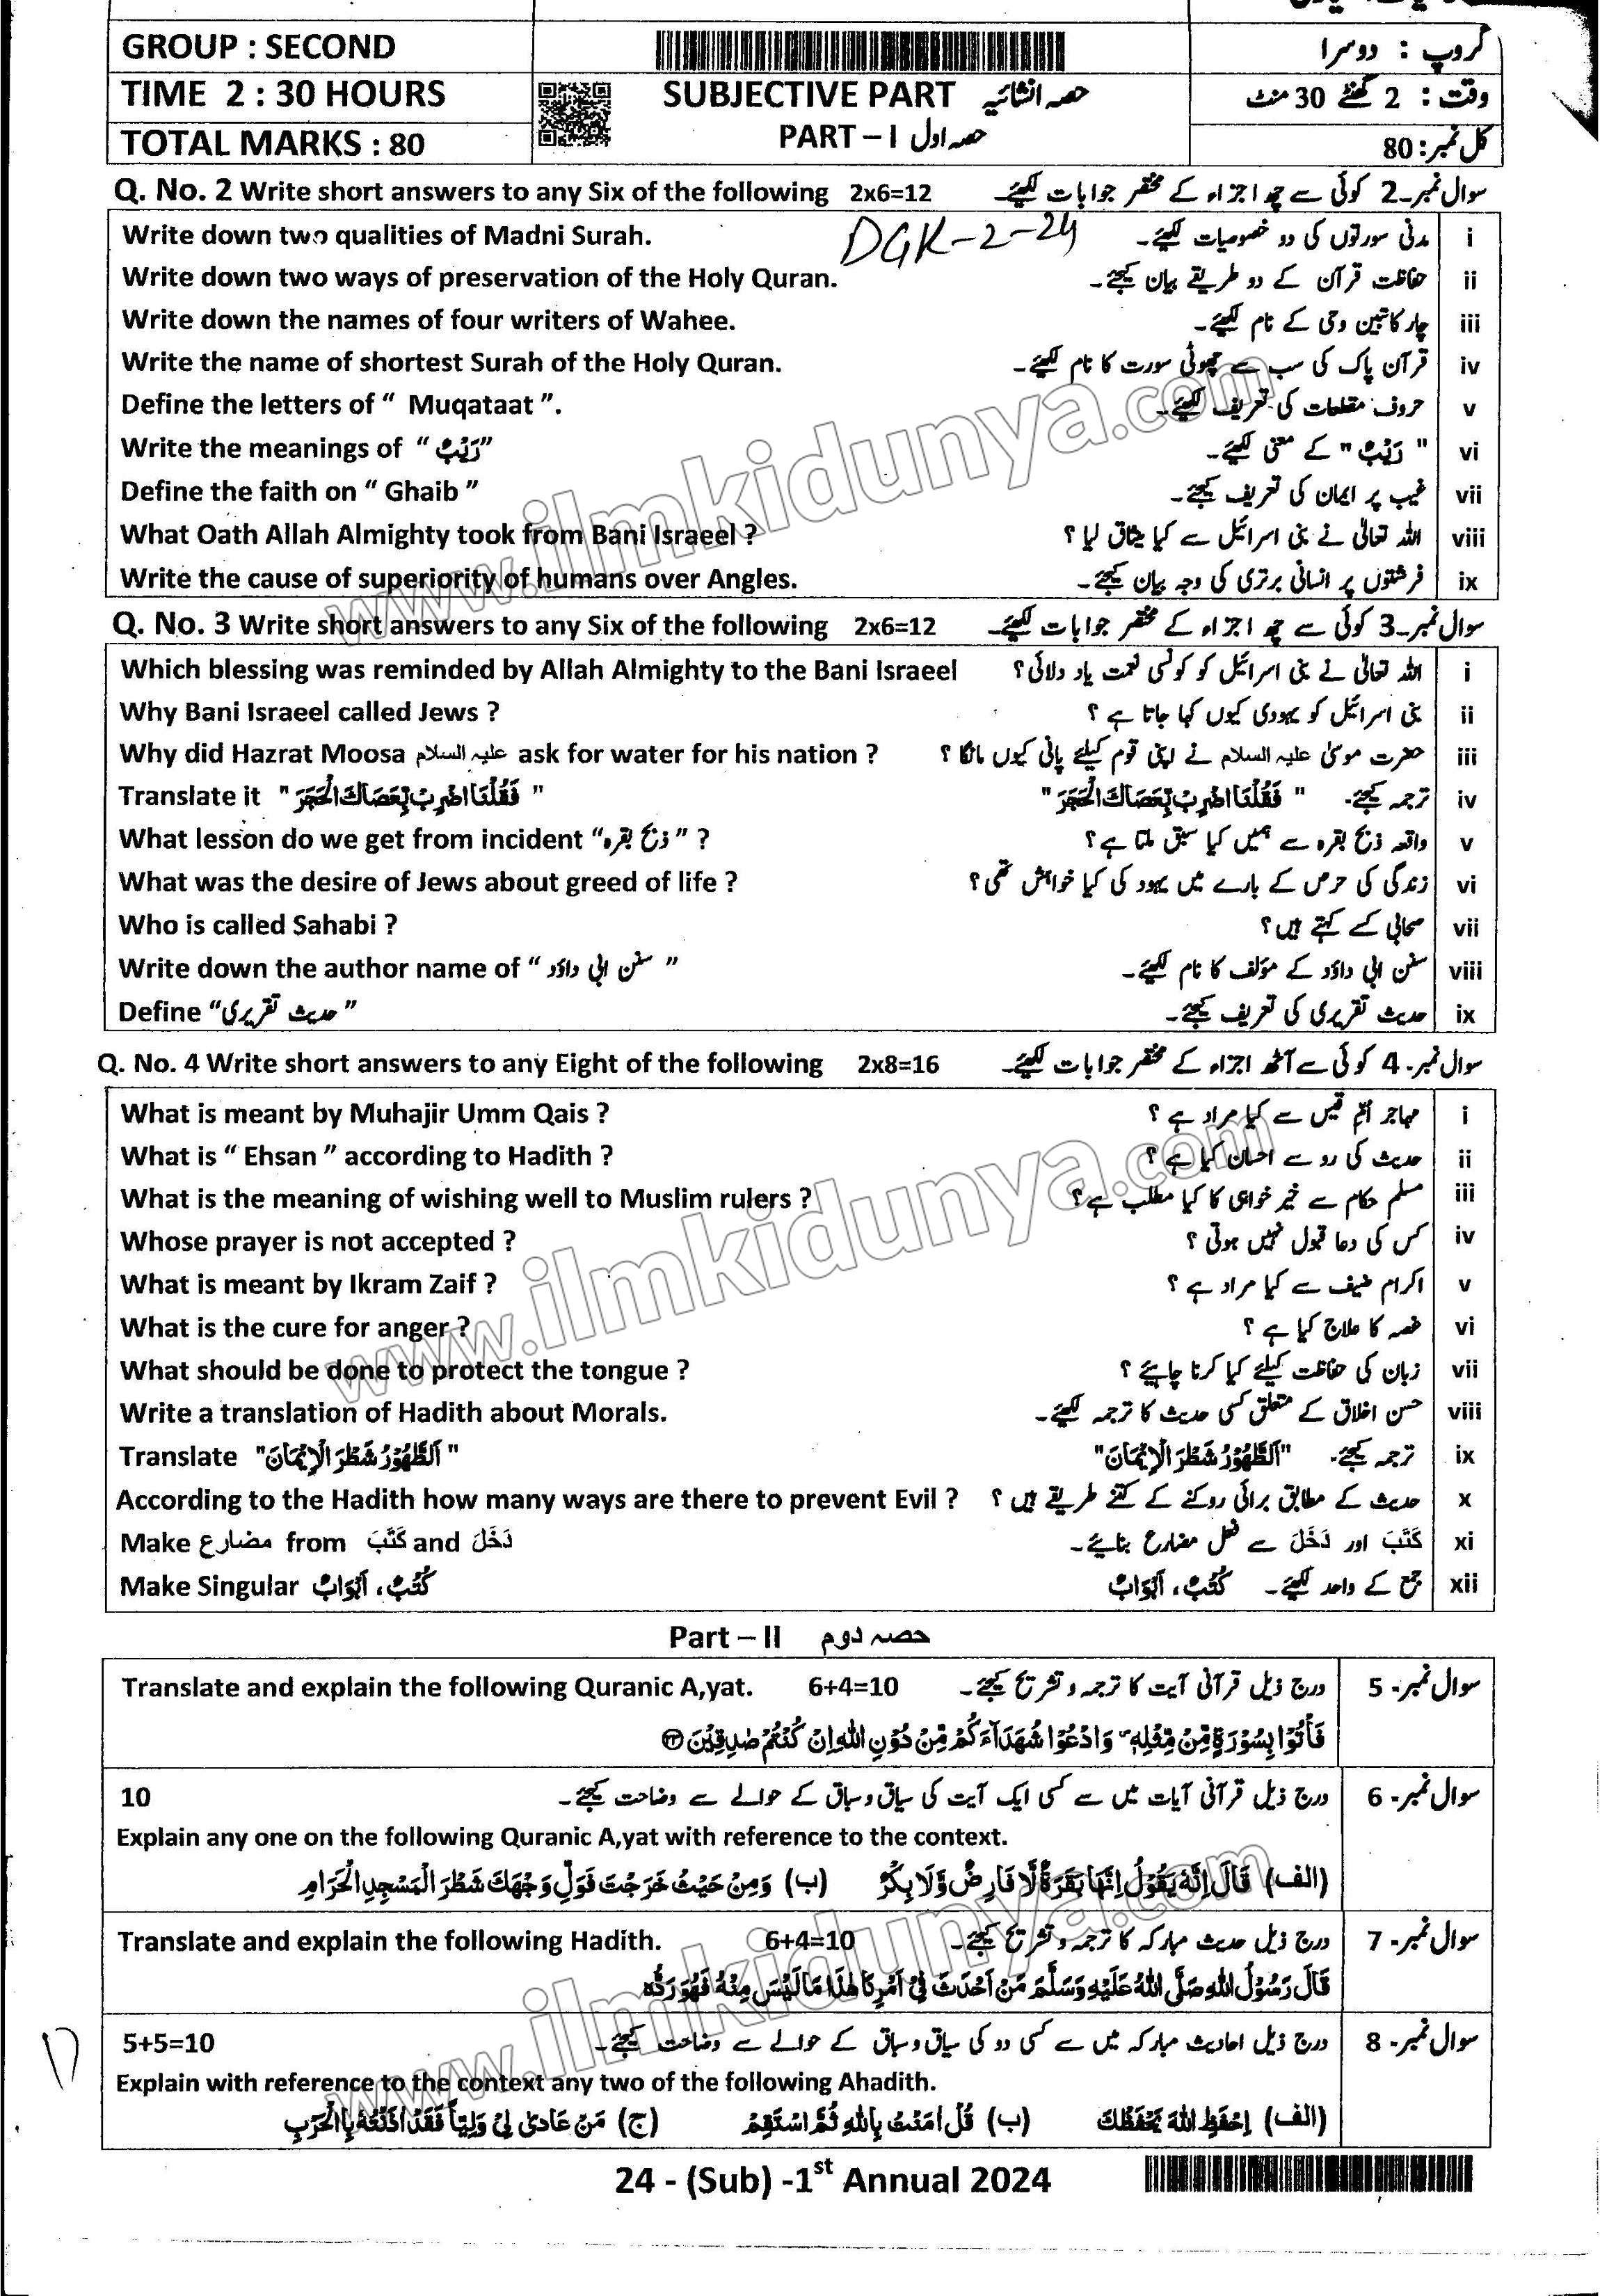 GROUP : SECOND گروپ : دوسرا
TIME 2 : 30 HOURS SUBJECTIVE PART حصہ انشائیہ وقت : 2 گھنٹے 30 منٹ
TOTAL MARKS : 80 PART – I حصہ اول کل نمبر: 80
Q. No. 2 Write short answers to any Six of the following 2x6=12 سوال نمبر۔2 کوئی سے چھ اجزاء کے مختصر جوابات لکھیئے۔
DGK-2-24
Write down two qualities of Madni Surah. مدنی سورتوں کی دو خصوصیات لکھیئے۔ i
Write down two ways of preservation of the Holy Quran. حفاظت قرآن کے دو طریقے بیان کیجئے۔ ii
Write down the names of four writers of Wahee. چار کاتبین وحی کے نام لکھیئے۔ iii
Write the name of shortest Surah of the Holy Quran. قرآن پاک کی سب سے چھوٹی سورت کا نام لکھیئے۔ iv
Define the letters of “ Muqataat ”. حروف مقطعات کی تعریف لکھیئے۔ v
Write the meanings of “ رَیْبٌ” " رَیْبٌ " کے معنی لکھیئے۔ vi
Define the faith on “ Ghaib ” غیب پر ایمان کی تعریف کیجئے۔ vii
What Oath Allah Almighty took from Bani Israeel ? اللہ تعالیٰ نے بنی اسرائیل سے کیا میثاق لیا ؟ viii
Write the cause of superiority of humans over Angles. فرشتوں پر انسانی برتری کی وجہ بیان کیجئے۔ ix
Q. No. 3 Write short answers to any Six of the following 2x6=12 سوال نمبر۔3 کوئی سے چھ اجزاء کے مختصر جوابات لکھیئے۔
Which blessing was reminded by Allah Almighty to the Bani Israeel اللہ تعالیٰ نے بنی اسرائیل کو کونسی نعمت یاد دلائی؟ i
Why Bani Israeel called Jews ? بنی اسرائیل کو یہودی کیوں کہا جاتا ہے ؟ ii
Why did Hazrat Moosa علیہ السلام ask for water for his nation ? حضرت موسیٰ علیہ السلام نے اپنی قوم کیلئے پانی کیوں مانگا ؟ iii
Translate it " فَقُلْنَا اضْرِبْ بِّعَصَاكَ الْحَجَرَ " ترجمہ کیجئے۔ " فَقُلْنَا اضْرِبْ بِّعَصَاكَ الْحَجَرَ " iv
What lesson do we get from incident “ذبح بقرہ ” ? واقعہ ذبح بقرہ سے ہمیں کیا سبق ملتا ہے؟ v
What was the desire of Jews about greed of life ? زندگی کی حرص کے بارے میں یہود کی کیا خواہش تھی؟ vi
Who is called Sahabi ? صحابی کسے کہتے ہیں؟ vii
Write down the author name of “ سنن ابی داؤد ” سنن ابی داؤد کے مؤلف کا نام لکھیئے۔ viii
Define “حدیث تقریری ” حدیث تقریری کی تعریف کیجئے۔ ix
Q. No. 4 Write short answers to any Eight of the following 2x8=16 سوال نمبر۔ 4 کوئی سے آٹھ اجزاء کے مختصر جوابات لکھیئے۔
What is meant by Muhajir Umm Qais ? مہاجر اُمّ قیس سے کیا مراد ہے ؟ i
What is “ Ehsan ” according to Hadith ? حدیث کی رو سے احسان کیا ہے ؟ ii
What is the meaning of wishing well to Muslim rulers ? مسلم حکام سے خیر خواہی کا کیا مطلب ہے؟ iii
Whose prayer is not accepted ? کس کی دعا قبول نہیں ہوتی ؟ iv
What is meant by Ikram Zaif ? اکرام ضیف سے کیا مراد ہے ؟ v
What is the cure for anger ? غصہ کا علاج کیا ہے ؟ vi
What should be done to protect the tongue ? زبان کی حفاظت کیلئے کیا کرنا چاہیئے ؟ vii
Write a translation of Hadith about Morals. حسن اخلاق کے متعلق کسی حدیث کا ترجمہ لکھیئے۔ viii
Translate "اَلطَّهُوْرُ شَطْرَ الْاِيْمَانَ " ترجمہ کیجئے۔ "اَلطَّهُوْرُ شَطْرَ الْاِيْمَانَ" ix
According to the Hadith how many ways are there to prevent Evil ? حدیث کے مطابق برائی روکنے کے کتنے طریقے ہیں ؟ x
Make مضارع from كَتَبَ and دَخَلَ كَتَبَ اور دَخَلَ سے فعل مضارع بنایئے۔ xi
Make Singular كُتُبٌ، اَبْوَابٌ جمع کے واحد لکھیئے۔ كُتُبٌ، اَبْوَابٌ xii
Part – II حصہ دوم
Translate and explain the following Quranic A,yat. 6+4=10 درج ذیل قرآنی آیت کا ترجمہ و تشریح کیجئے۔ سوال نمبر۔ 5
فَاْتُوْا بِسُوْرَةٍ مِّنْ مِّثْلِهٖ ۪ وَادْعُوْا شُهَدَآءَكُمْ مِّنْ دُوْنِ اللّٰهِ اِنْ كُنْتُمْ صٰدِقِيْنَ ۲۳
10 درج ذیل قرآنی آیات میں سے کسی ایک آیت کی سیاق و سباق کے حوالے سے وضاحت کیجئے۔ سوال نمبر۔ 6
Explain any one on the following Quranic A,yat with reference to the context.
(الف) قَالَ اِنَّهٗ يَقُوْلُ اِنَّهَا بَقَرَةٌ لَّا فَارِضٌ وَّلَا بِكْرٌ (ب) وَمِنْ حَيْثُ خَرَجْتَ فَوَلِّ وَجْهَكَ شَطْرَ الْمَسْجِدِ الْحَرَامِ
Translate and explain the following Hadith. 6+4=10 درج ذیل حدیث مبارکہ کا ترجمہ و تشریح کیجئے۔ سوال نمبر۔ 7
قَالَ رَسُوْلُ اللّٰهِ صَلَّى اللّٰهُ عَلَيْهِ وَسَلَّمَ مَنْ اَحْدَثَ فِيْ اَمْرِنَا هٰذَا مَا لَيْسَ مِنْهُ فَهُوَ رَدٌّ
5+5=10 درج ذیل احادیث مبارکہ میں سے کسی دو کی سیاق و سباق کے حوالے سے وضاحت کیجئے۔ سوال نمبر۔ 8
Explain with reference to the context any two of the following Ahadith.
(الف) اِحْفَظِ اللّٰهَ يَحْفَظْكَ (ب) قُلْ اٰمَنْتُ بِاللّٰهِ ثُمَّ اسْتَقِمْ (ج) مَنْ عَادٰى لِيْ وَلِيّاً فَقَدْ اٰذَنْتُهٗ بِالْحَرْبِ
24 - (Sub) -1st Annual 2024
www.ilmkidunya.com
www.ilmkidunya.com
www.ilmkidunya.com